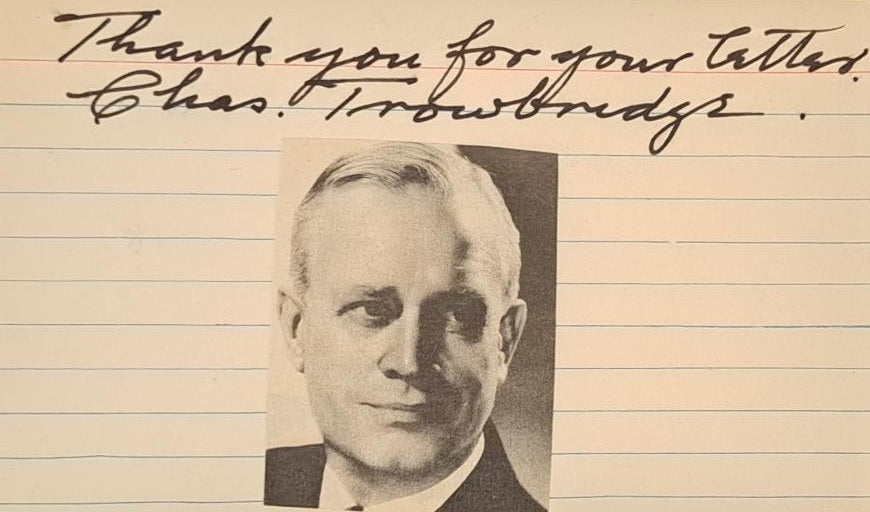 Thank you for your letter.
Chas. Trowbridge.